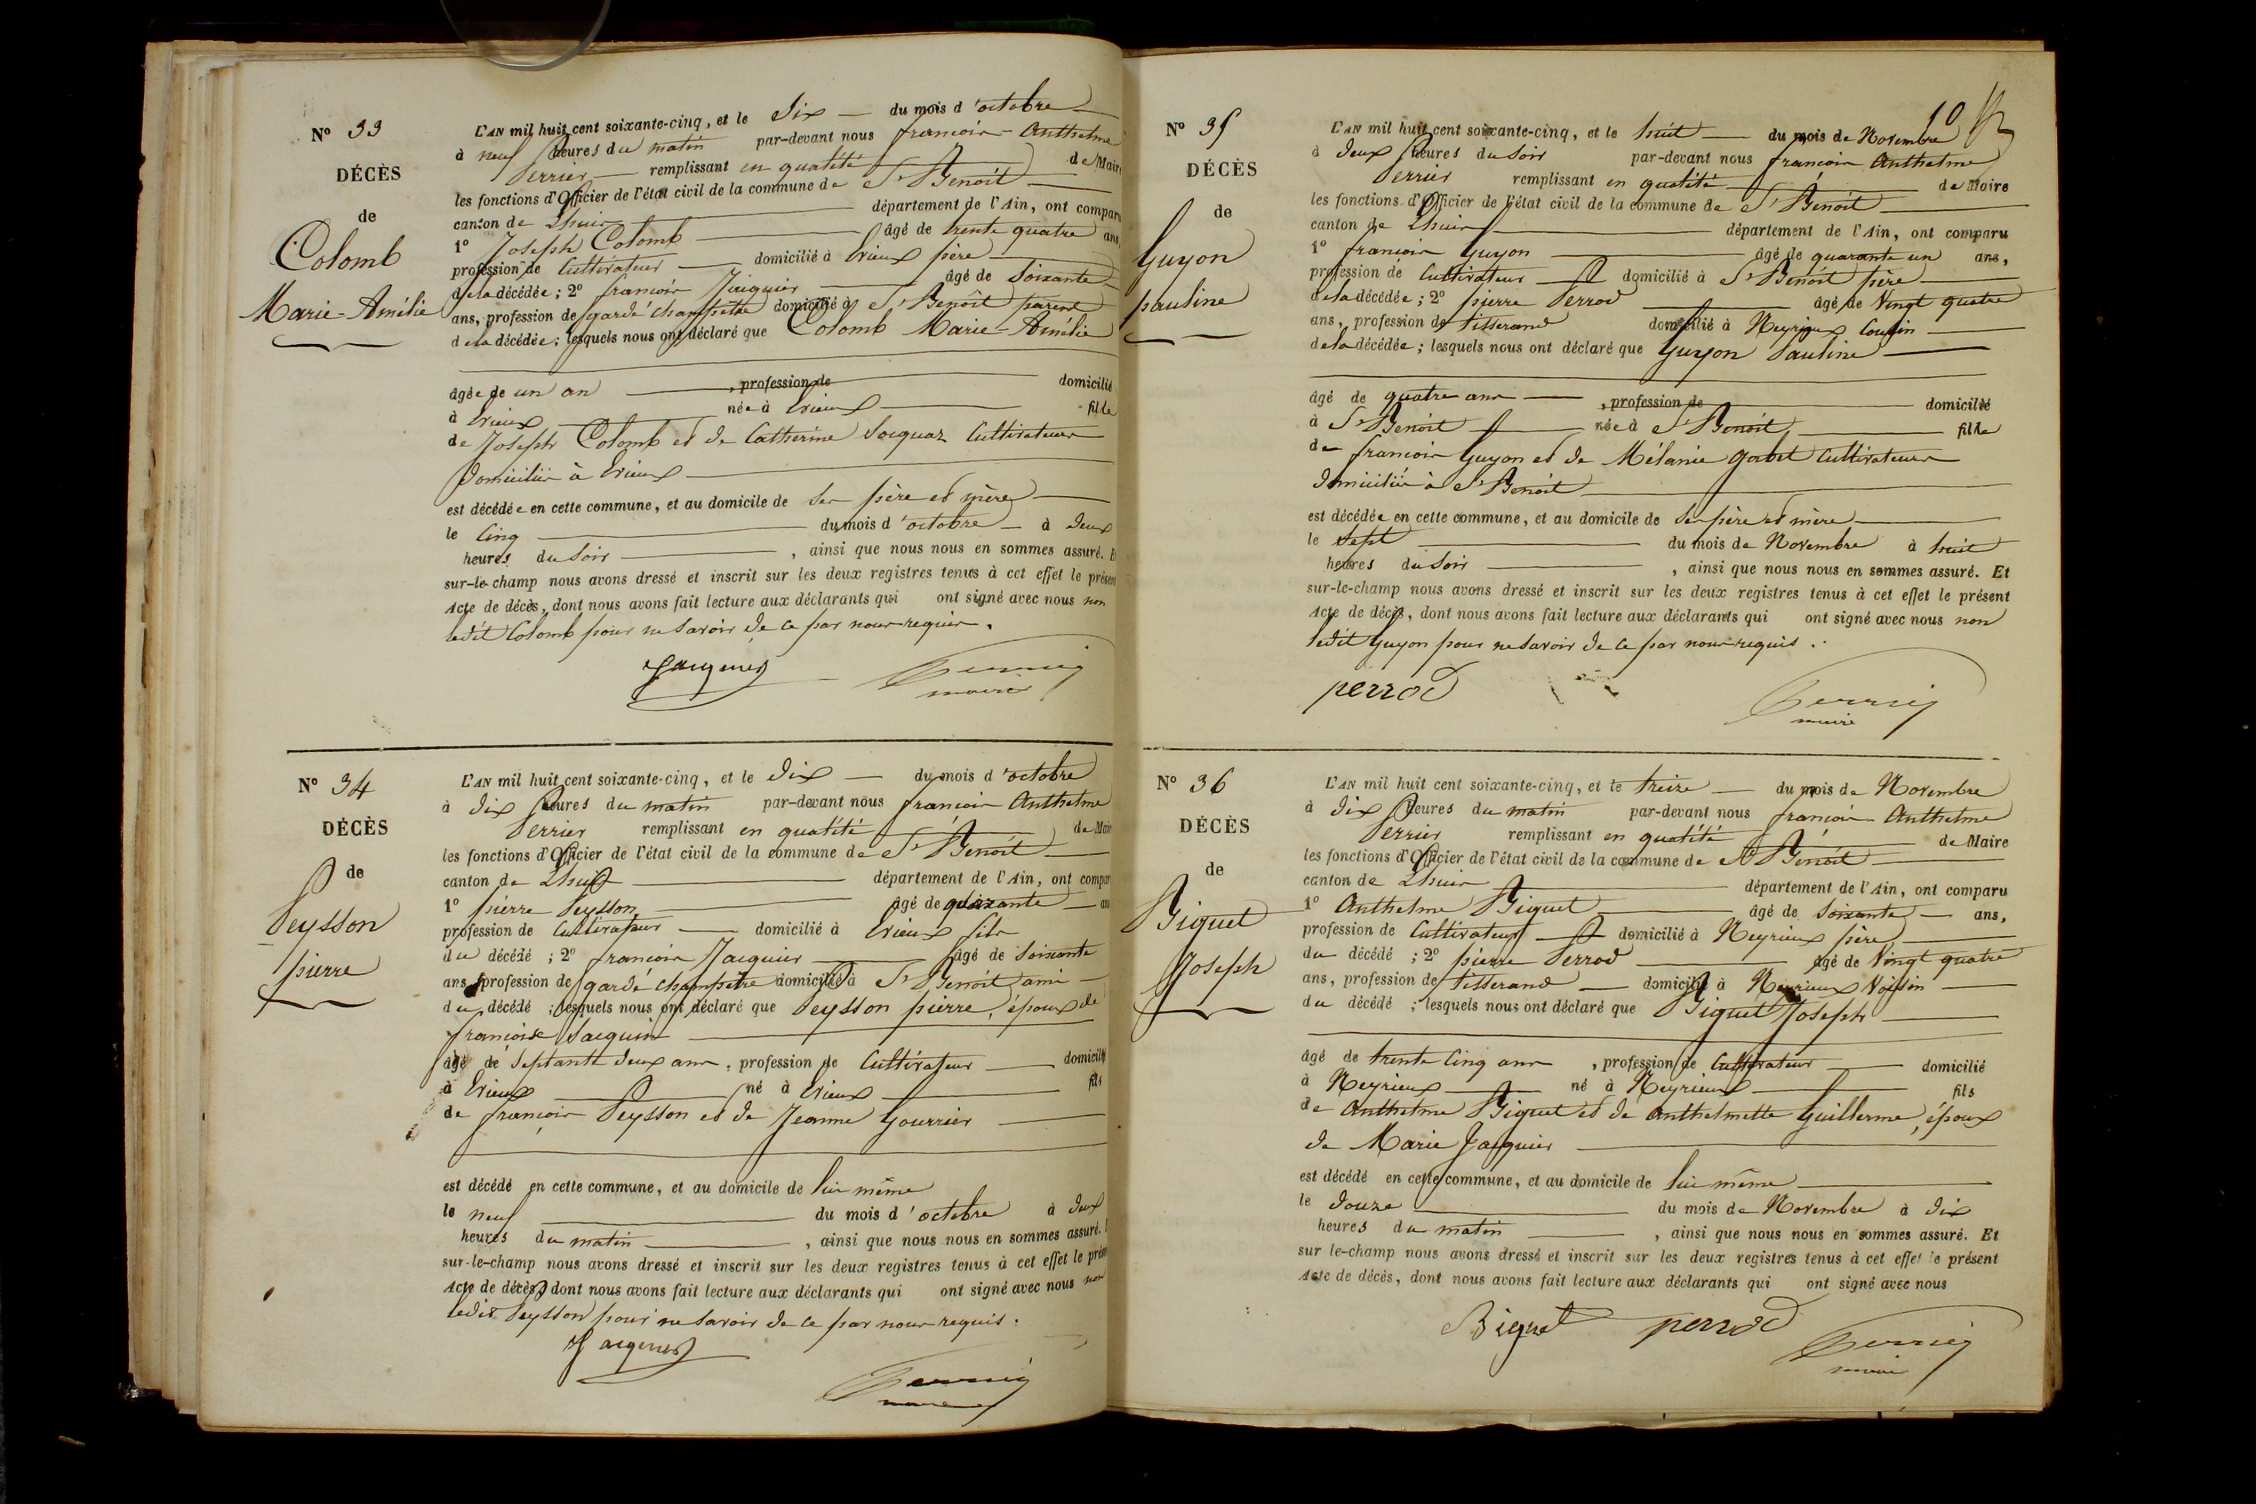 Nº 33
DÉCÈS
de
Colomb
Marie-Amélie
L'AN mil huit cent soixante-cinq, et le dix du mois d'octobre
à neuf heures du matin par-devant nous françois Anthelme
Perrier remplissant en qualité de Maire
les fonctions d'Officier de l'état civil de la commune de St Benoit
canton de Lhuis département de l'Ain, ont comparu
1º Joseph Colomb âgé de trente quatre ans,
profession de Cultivateur domicilié à Evieux père
de la décédée ; 2º françois Jacquier âgé de soixante
ans, profession de garde champêtre domicilié à St Benoit parent
de la décédée ; lesquels nous ont déclaré que Colomb Marie-Amélie
âgée de un an , profession de domicilié
à Evieux née à Evieux fille
de Joseph Colomb et de Catherine Jacquaz Cultivateurs
domiciliés à Evieux
est décédée en cette commune, et au domicile de ses père et mère
le cinq du mois d'octobre à deux
heures du soir , ainsi que nous nous en sommes assuré. Et
sur-le-champ nous avons dressé et inscrit sur les deux registres tenus à cet effet le présent
Acte de décès, dont nous avons fait lecture aux déclarants qui ont signé avec nous non
ledit Colomb pour ne savoir de ce par nous requis.
Jacquier Perrier
maire
Nº 34
DÉCÈS
de
Peysson
pierre
L'AN mil huit cent soixante-cinq, et le dix du mois d'octobre
à dix heures du matin par-devant nous françois Anthelme
Perrier remplissant en qualité de Maire
les fonctions d'Officier de l'état civil de la commune de St Benoit
canton de Lhuis département de l'Ain, ont comparu
1º pierre Peysson âgé de quarante ans
profession de Cultivateur domicilié à Evieux fils
du décédé ; 2º françois Jacquier âgé de soixante
ans, profession de garde champêtre domicilié à St Benoit ami
du décédé ; lesquels nous ont déclaré que Peysson pierre, époux de
françoise Jacquin
âgé de septante deux ans, profession de Cultivateur domicilié
à Evieux né à Evieux fils
de françois Peysson et de Jeanne Gourrier
est décédé en cette commune, et au domicile de lui même
le neuf du mois d'octobre à deux
heures du matin , ainsi que nous nous en sommes assuré.
sur-le-champ nous avons dressé et inscrit sur les deux registres tenus à cet effet le présent
Acte de décès, dont nous avons fait lecture aux déclarants qui ont signé avec nous non
ledit Peysson pour ne savoir de ce par nous requis.
Jacquier
Perrier
maire
10
Nº 35
DÉCÈS
de
Guyon
pauline
L'AN mil huit cent soixante-cinq, et le huit du mois de Novembre
à deux heures du soir par-devant nous françois Anthelme
Perrier remplissant en qualité de Maire
les fonctions d'Officier de l'état civil de la commune de St Benoit
canton de Lhuis département de l'Ain, ont comparu
1º françois Guyon âgé de quarante un ans,
profession de Cultivateur domicilié à St Benoit père
de la décédée ; 2º pierre Perrod âgé de vingt quatre
ans, profession de tisserand domicilié à Neyrieux Cousin
de la décédée ; lesquels nous ont déclaré que Guyon Pauline
âgé de quatre ans , profession de domiciliée
à St Benoit née à St Benoit fille
de françois Guyon et de Mélanie Gorbet Cultivateurs
domiciliés à St Benoit
est décédée en cette commune, et au domicile de ses père et mère
le sept du mois de Novembre à huit
heures du soir , ainsi que nous nous en sommes assuré. Et
sur-le-champ nous avons dressé et inscrit sur les deux registres tenus à cet effet le présent
Acte de décès, dont nous avons fait lecture aux déclarants qui ont signé avec nous non
ledit Guyon pour ne savoir de ce par nous requis.
perrod Perrier
maire
Nº 36
DÉCÈS
de
Biguet
Joseph
L'AN mil huit cent soixante-cinq, et le treize du mois de Novembre
à dix heures du matin par-devant nous françois Anthelme
Perrier remplissant en qualité de Maire
les fonctions d'Officier de l'état civil de la commune de St Benoit
canton de Lhuis département de l'Ain, ont comparu
1º Anthelme Biguet âgé de soixante ans,
profession de Cultivateur domicilié à Neyrieux père
du décédé ; 2º pierre Perrod âgé de vingt quatre
ans, profession de tisserand domicilié à Neyrieux Voisin
du décédé ; lesquels nous ont déclaré que Biguet Joseph
âgé de trente cinq ans , profession de Cultivateur domicilié
à Neyrieux né à Neyrieux fils
de Anthelme Biguet et de Anthelmette Guillerme, époux
de Marie Jacquier
est décédé en cette commune, et au domicile de lui même
le douze du mois de Novembre à dix
heures du matin , ainsi que nous nous en sommes assuré. Et
sur le-champ nous avons dressé et inscrit sur les deux registres tenus à cet effet le présent
Acte de décès, dont nous avons fait lecture aux déclarants qui ont signé avec nous
Biguet perrod Perrier
maire